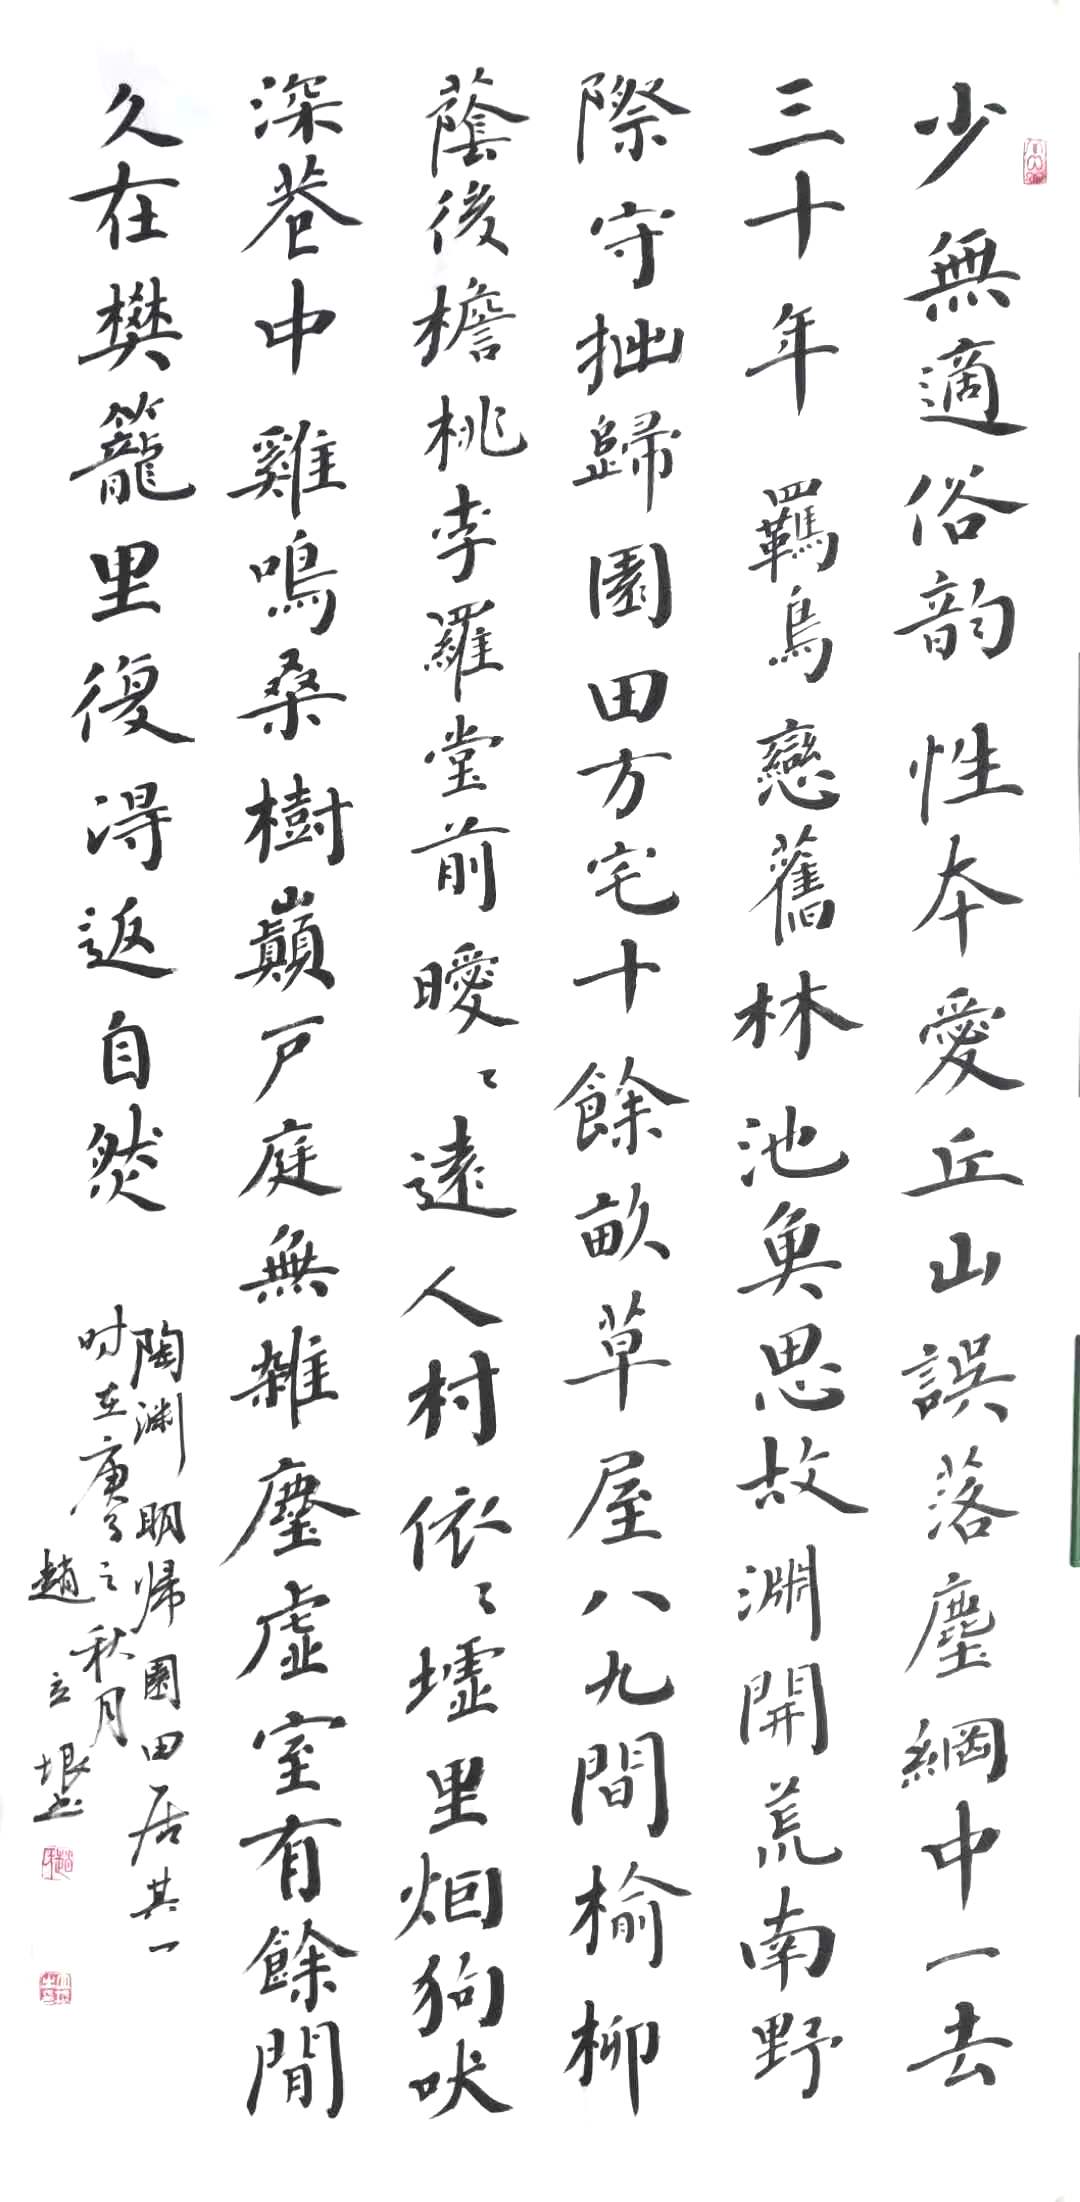 少無適俗韵性本愛丘山誤落塵網中一去
三十年羈鳥戀舊林池魚思故淵開荒南野
際守拙歸園田方宅十餘畝草屋八九間榆柳
蔭後檐桃李羅堂前曖〻遠人村依〻墟里烟狗吠
深巷中雞鳴桑樹巔戶庭無雜塵虛室有餘閒
久在樊籠里復得返自然
陶渊明帰園田居其一
时在庚子之秋月
趙立垠书